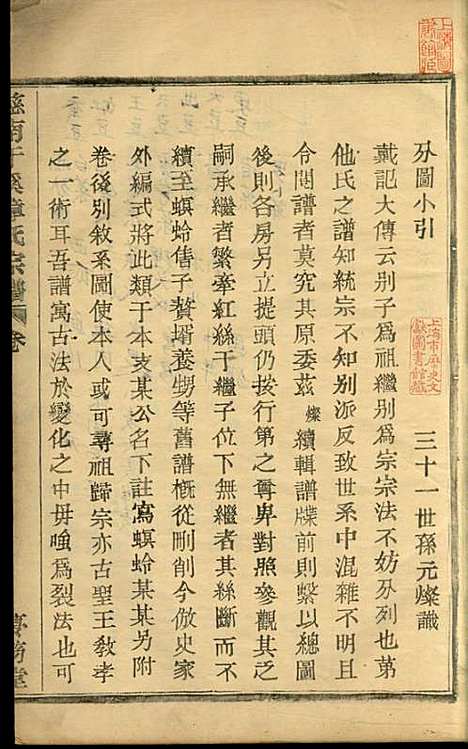 外圖小引
三十一世孫元燦識
戴記大傳云别子為祖繼别為宗宗法不妨分列也第
他氏之譜知統宗不知别派反致世系中混雜不明且
令閱譜者莫究其原委茲燦續輯譜牒前則繫以總圖
後則各房另立提頭仍按行第之尊卑對照參觀其之
嗣承繼者繁牽紅絲于繼子位下無繼者其絲斷而不
續至螟蛉偖子贅壻養甥等舊譜概從刪削今倣史家
外編式將此類于本支某公名下註寫螟蛉某某另附
卷後别敘系圖使本人或可尋祖歸宗亦古聖王教孝
之一術耳吾譜寓古法於變化之中毋嗤為裂法也可
慈南干溪章氏宗譜 卷一
上海市歷史文獻圖書館藏
上海圖書館藏